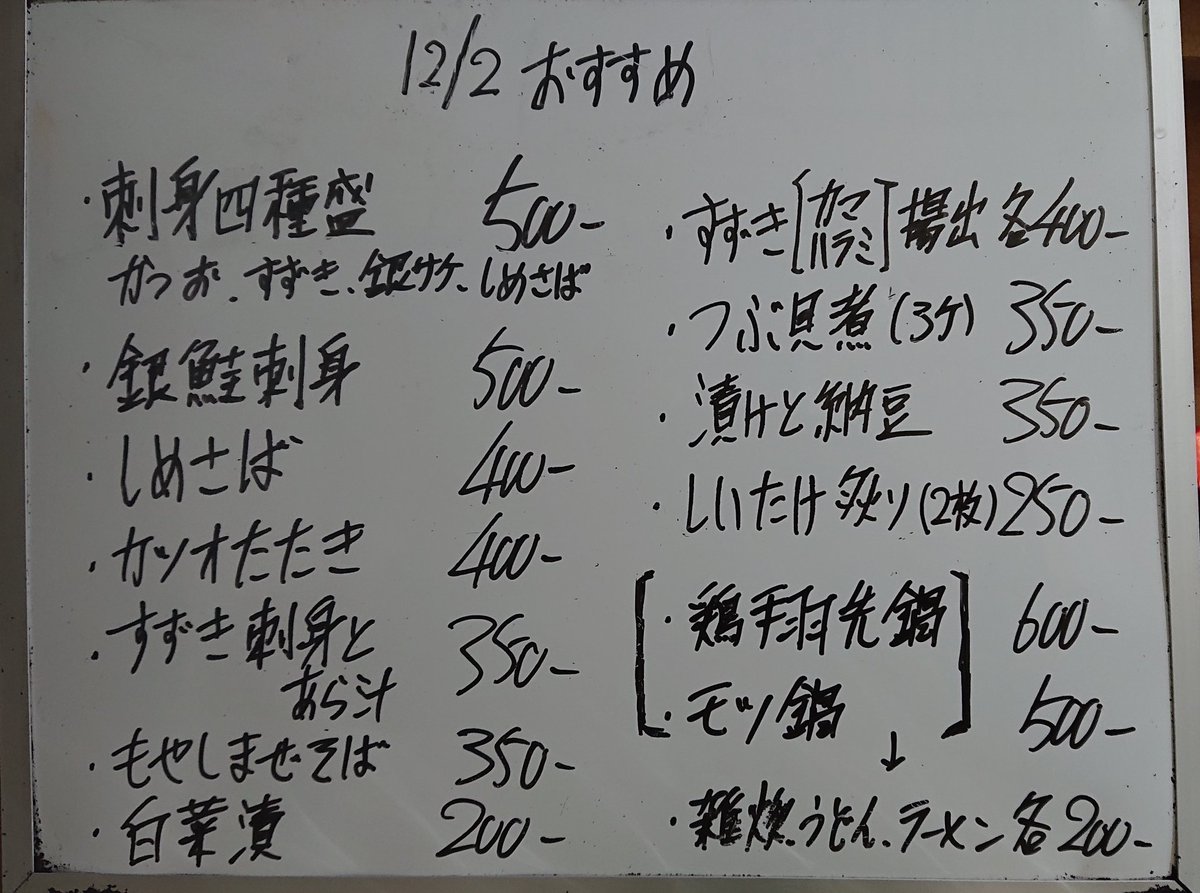 12/2 おすすめ
・刺身四種盛 500-
かつお、すずき、銀サケ、しめさば
・銀鮭刺身 500-
・しめさば 400-
・カツオたたき 400-
・すずき刺身と
あら汁 350-
・もやしまぜそば 350-
・白菜漬 200-
・すずき[カマ
ハラミ]揚出 各400-
・つぶ貝煮(3ケ) 350-
・漬けと納豆 350-
・しいたけ炙り(2枚) 250-
・鶏手羽先鍋 600-
・モツ鍋 500-
↓
・雑炊、うどん、ラーメン 各200-